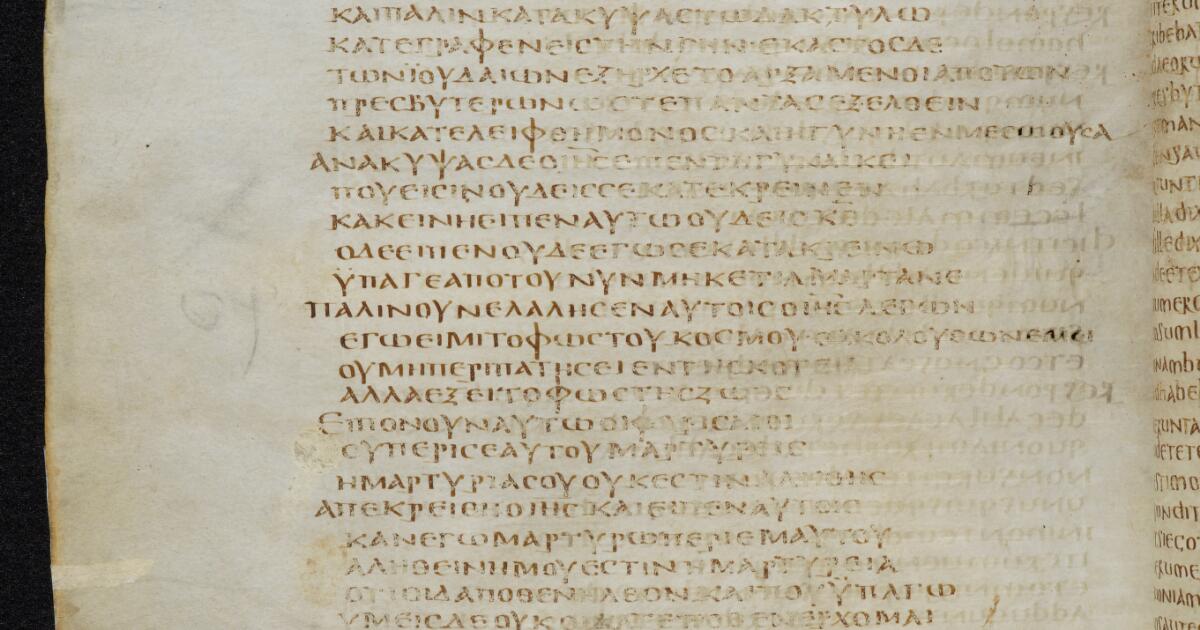 ΚΑΙΠΑΛΙΝΚΑΤΑΚΥΨΑΣΤΩΔΑΚΤΥΛΩ
ΚΑΤΕΓΡΑΦΕΝΕΙϹΤΗΝΓΗΝ·ΕΚΑϹΤΟϹΔΕ
ΤΩΝΪΟΥΔΑΙΩΝΕΞΗΡΧΕΤΟΑΡΞΑΜΕΝΟΙΑΠΟΤΩΝ
ΠΡΕϹΒΥΤΕΡΩΝΩϹΤΕΠΑΝΤΑϹΕΞΕΛΘΕΙΝ
ΚΑΙΚΑΤΕΛΕΙΦΘΗΜΟΝΟϹΚΑΙΗΓΥΝΗΕΝΜΕϹΩΟΥϹΑ
ΑΝΑΚΥΨΑϹΔΕΟΙΗϹΕΙΠΕΝΤΗΓΥΝΑΙΚΕΙ
ΠΟΥΕΙϹΙΝΟΥΔΕΙϹϹΕΚΑΤΕΚΡΕΙΝΕΝ
ΚΑΚΕΙΝΗΕΙΠΕΝΑΥΤΩΟΥΔΕΙϹΚΕ
ΟΔΕΕΙΠΕΝΟΥΔΕΕΓΩϹΕΚΑΤΑΚΡΕΙΝΩ
ΫΠΑΓΕΑΠΟΤΟΥΝΥΝΜΗΚΕΤΙΑΜΑΡΤΑΝΕ
ΠΑΛΙΝΟΥΝΕΛΑΛΗϹΕΝΑΥΤΟΙϹΟΙΗϹΛΕΓΩΝ
ΕΓΩΕΙΜΙΤΟΦΩϹΤΟΥΚΟϹΜΟΥ·ΟΑΚΟΛΟΥΘΩΝΕΜΟΙ
ΟΥΜΗΠΕΡΙΠΑΤΗϹΕΙΕΝΤΗϹΚΟΤΕΙΑ
ΑΛΛΑΕΞΕΙΤΟΦΩϹΤΗϹΖΩΗϹ
ΕΙΠΟΝΟΥΝΑΥΤΩΟΙΦΑΡΙϹΑΙΟΙ
ϹΥΠΕΡΙϹΕΑΥΤΟΥΜΑΡΤΥΡΕΙϹ
ΗΜΑΡΤΥΡΙΑϹΟΥΟΥΚΕϹΤΙΝΑΛΗΘΗϹ
ΑΠΕΚΡΕΙΘΗΟΙΗϹΚΑΙΕΙΠΕΝΑΥΤΟΙϹ
ΚΑΝΕΓΩΜΑΡΤΥΡΩΠΕΡΙΕΜΑΥΤΟΥ
ΑΛΗΘΕΙΝΗΜΟΥΕϹΤΙΝΗΜΑΡΤΥΡΕΙΑ
ΟΤΙΟΙΔΑΠΟΘΕΝΗΛΘΟΝΚΑΙΠΟΥΫΠΑΓΩ
ΥΜΕΙϹΔΕΟΥΚΟΙΔΑΤΕΠΟΘΕΝΕΡΧΟΜΑΙ